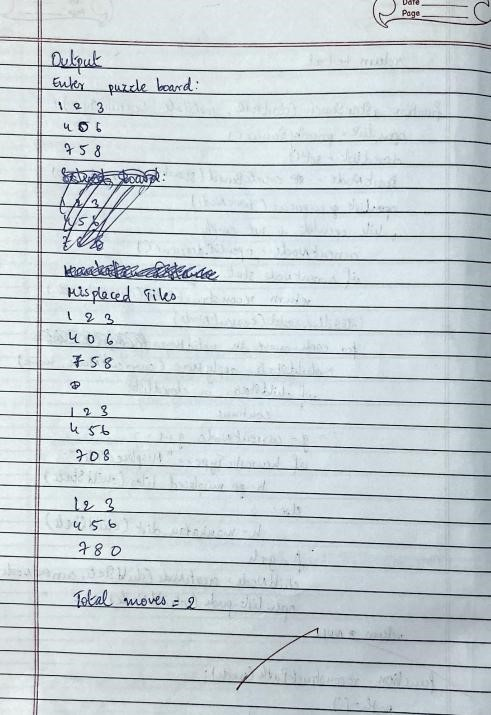 Date
Page
Output
Enter puzzle board:
1 2 3
4 0 6
7 5 8
Misplaced Tiles
1 2 3
4 0 6
7 5 8
1 2 3
4 5 6
7 0 8
1 2 3
4 5 6
7 8 0
Total moves = 2